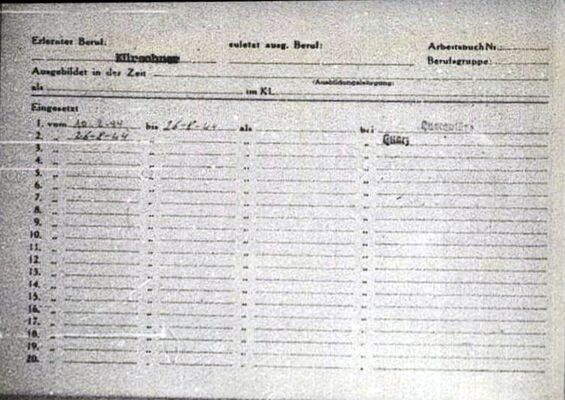 Erlernter Beruf: zuletzt ausg. Beruf: Arbeitsbuch Nr.:
Kürschner Berufsgruppe:
Ausgebildet in der Zeit
(Ausbildungslehrgang)
als im KL
Eingesetzt
1. vom bis 26-8-44 als bei
2. „ 26-8-44 „ „ Quarz
3. „ „ „ „
4. „ „ „ „
5. „ „ „ „
6. „ „ „ „
7. „ „ „ „
8. „ „ „ „
9. „ „ „ „
10. „ „ „ „
11. „ „ „ „
12. „ „ „ „
13. „ „ „ „
14. „ „ „ „
15. „ „ „ „
16. „ „ „ „
17. „ „ „ „
18. „ „ „ „
19. „ „ „ „
20. „ „ „ „